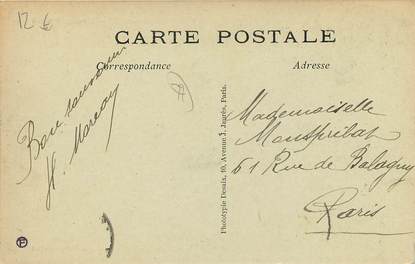 12 €
CARTE POSTALE
Correspondance
Adresse
Bon souvenir
Phototypie Desaix, 10, Avenue J. Jaurès, Paris.
Mademoiselle
61 Rue de Balagny
Paris